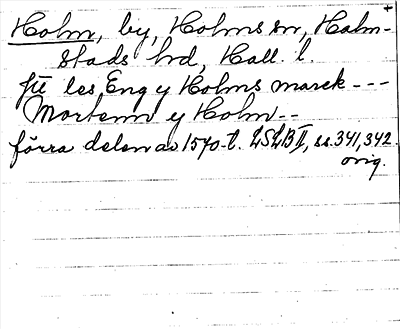 Holm, by, Holms sn, Halm-
stads hd, Hall. l.
jtt les Eng y Holms marck ---
Mortenn y Holm --
förra delen av 1570-t. LSLB II, ss. 341, 342.
orig.